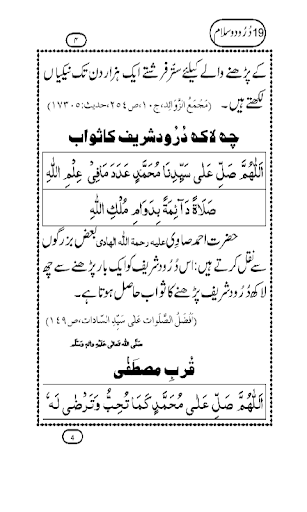 19 دُرُود و سلام
۴
کے پڑھنے والے کیلئے ستّر فرشتے ایک ہزار دن تک نیکیاں
لکھتے ہیں۔ (مَجْمَعُ الزَّوَائِد، ج۱۰، ص۲۵۴، حدیث: ۱۷۳۰۵)
چھ لاکھ دُرُود شریف کا ثواب
اَللّٰهُمَّ صَلِّ عَلٰى سَيِّدِنَا مُحَمَّدٍ عَدَدَ مَا فِيْ عِلْمِ اللّٰهِ
صَلَاةً دَآئِمَةً بِدَوَامِ مُلْكِ اللّٰهِ
حضرت احمد صاوِی علیہ رحمۃ اللہ الہادی بعض بزرگوں
سے نقل کرتے ہیں: اس دُرُود شریف کو ایک بار پڑھنے سے چھ
لاکھ دُرُود شریف پڑھنے کا ثواب حاصل ہوتا ہے۔
(اَفْضَلُ الصَّلَوات عَلٰی سَیِّدِ السَّادات، ص۱۴۹)
صلَّی اللہ تعالٰی علیہ واٰلہٖ وسلَّم
قُربِ مصطَفٰے
اَللّٰهُمَّ صَلِّ عَلٰى مُحَمَّدٍ كَمَا تُحِبُّ وَتَرْضٰى لَهٗ
۴